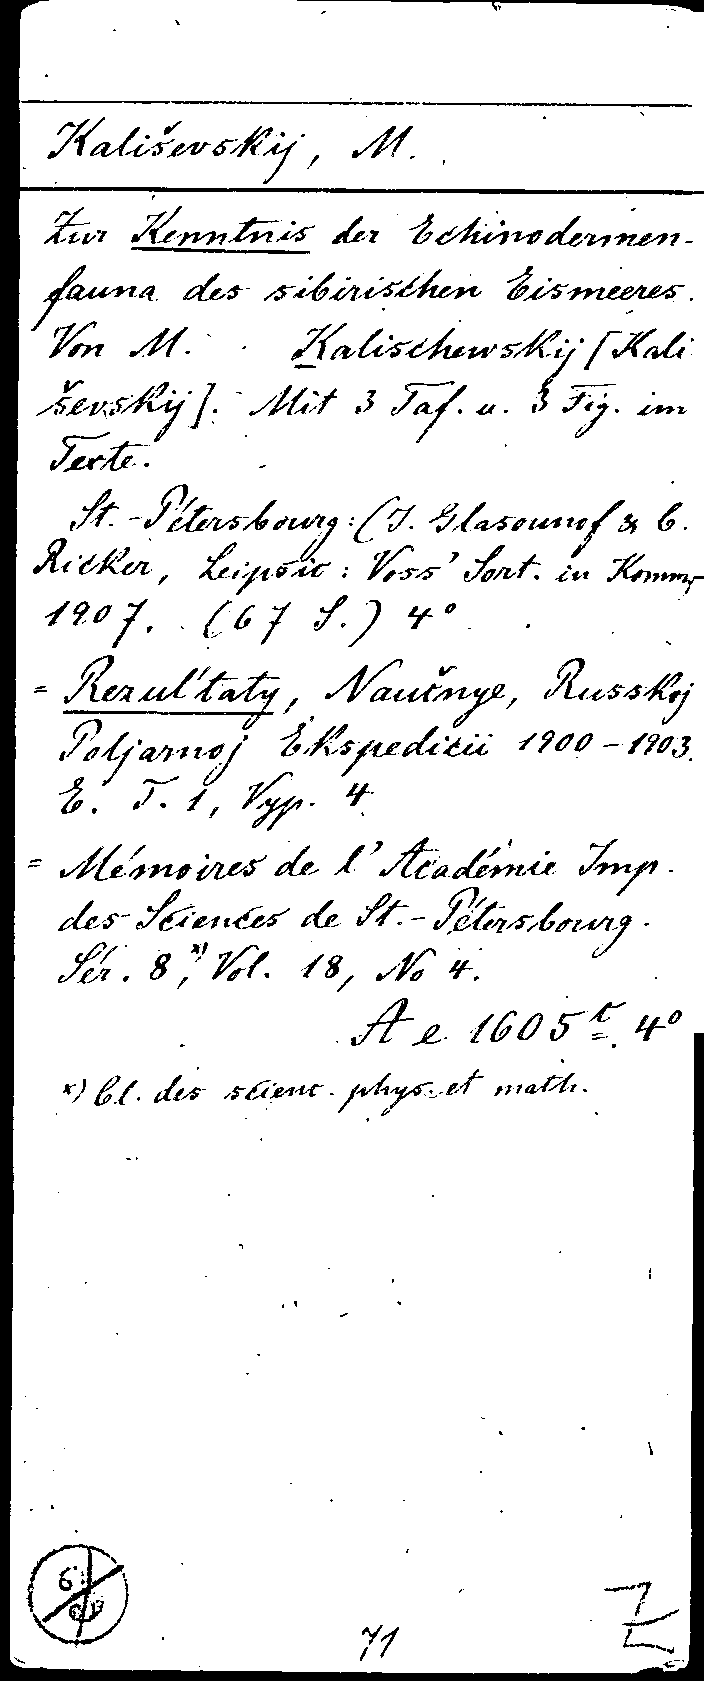 Kališevskij, M.
Zur Kenntnis der Echinodermen-
fauna des sibirischen Eismeeres.
Von M. Kalischewskij [Kali
ševskij]. Mit 3 Taf. u. 3 Fig. im
Texte.
St.-Pétersbourg: (J. Glasounof & C.
Ricker, Leipsic: Voss' Sort. in Komm.
1907. (67 S.) 4°
= Rezul'taty, Naučnye, Russkoj
Poljarnoj Ėkspedicii 1900-1903.
E. T. 1, Vyp. 4
= Mémoires de l'Académie Imp.
des Sciences de St.-Pétersbourg.
Sér. 8,ˣ⁾ Vol. 18, No 4.
A e 1605 4°
x) Cl. des scienc. phys. et math.
71
Z